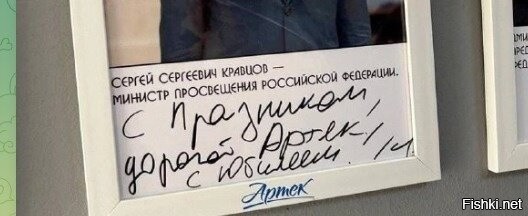 СЕРГЕЙ СЕРГЕЕВИЧ КРАВЦОВ —
МИНИСТР ПРОСВЕЩЕНИЯ РОССИЙСКОЙ ФЕДЕРАЦИИ.
С Празником,
дорогой Артек!
с Юбилеем.
Артек
Fishki.net